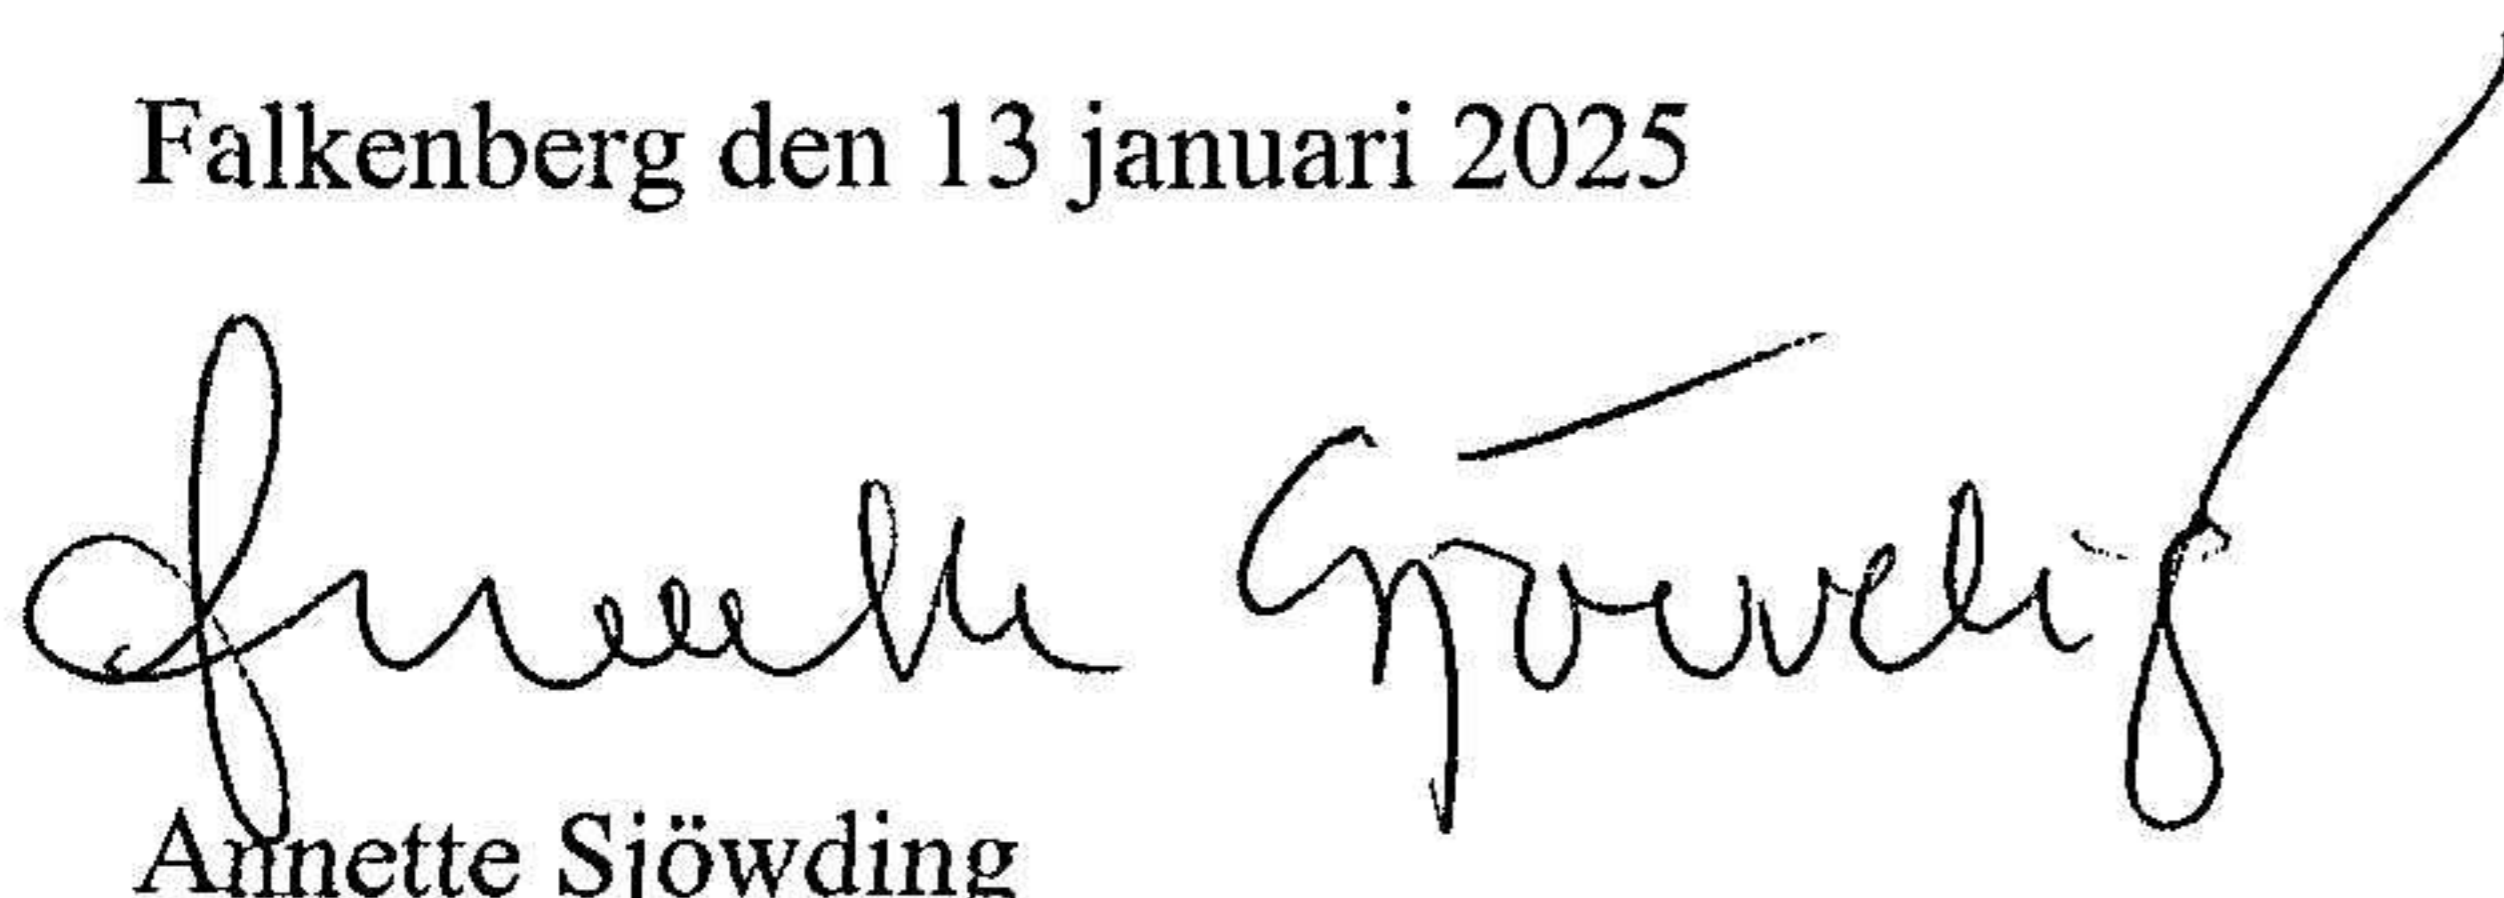 Falkenberg den 13 januari 2025
Annette Sjöwding
Annette Sjöwding